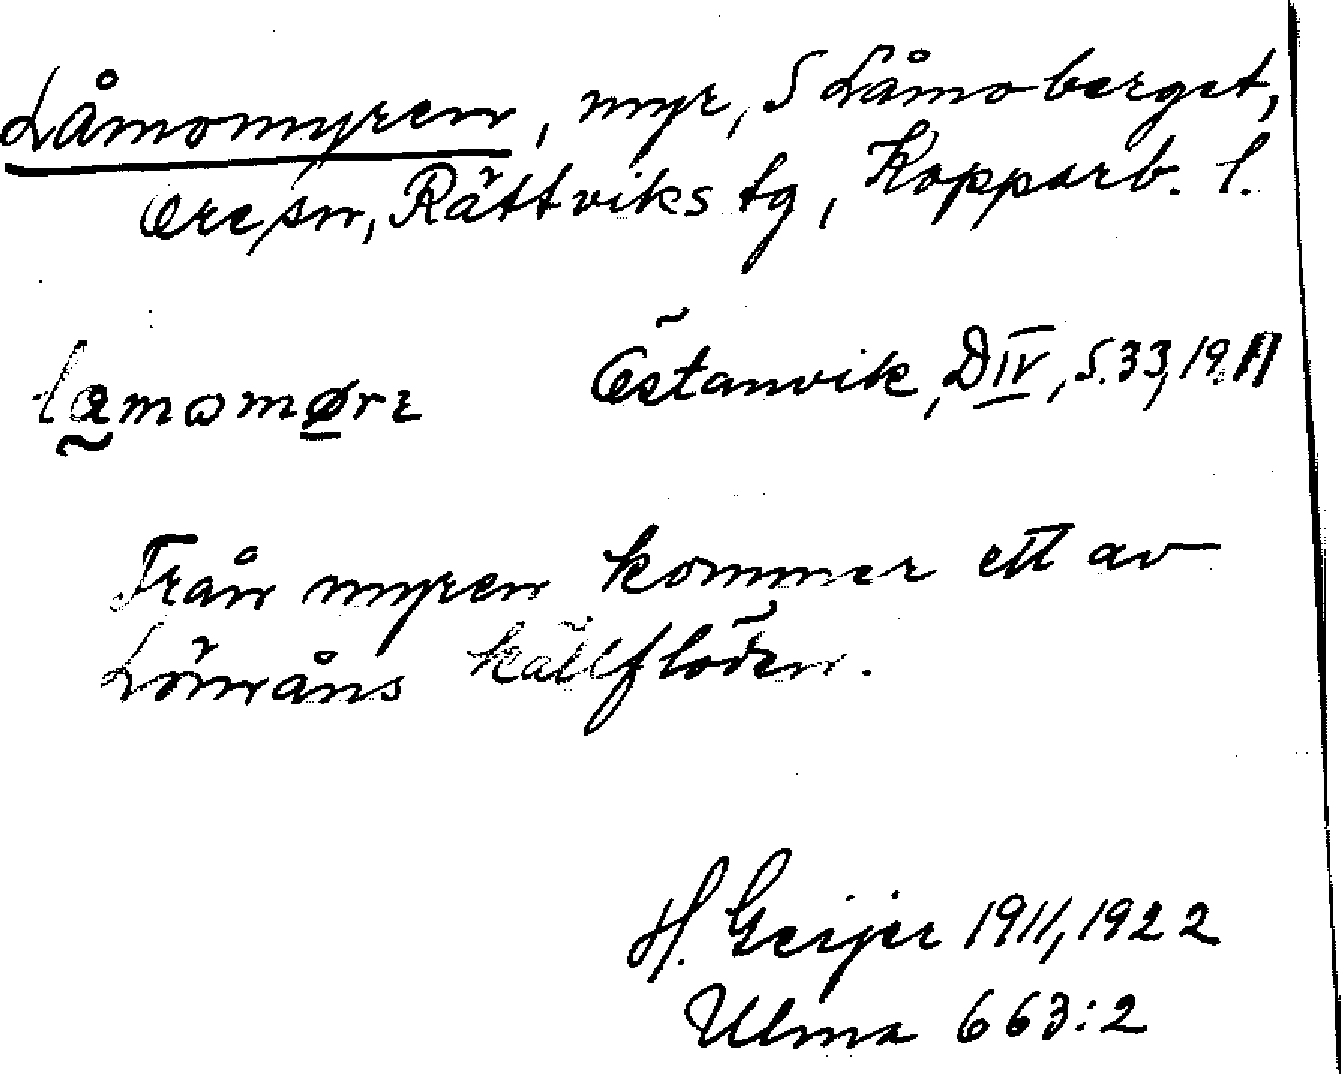 Låmomyren, myr, S Låmoberget,
Ore sn, Rättviks tg, Kopparb. l.
Östanvik, D IV, s. 33, 1911
Från myren kommer ett av
Lömåns källflöden.
H. Geijer 1911, 1922
Ulma 663:2